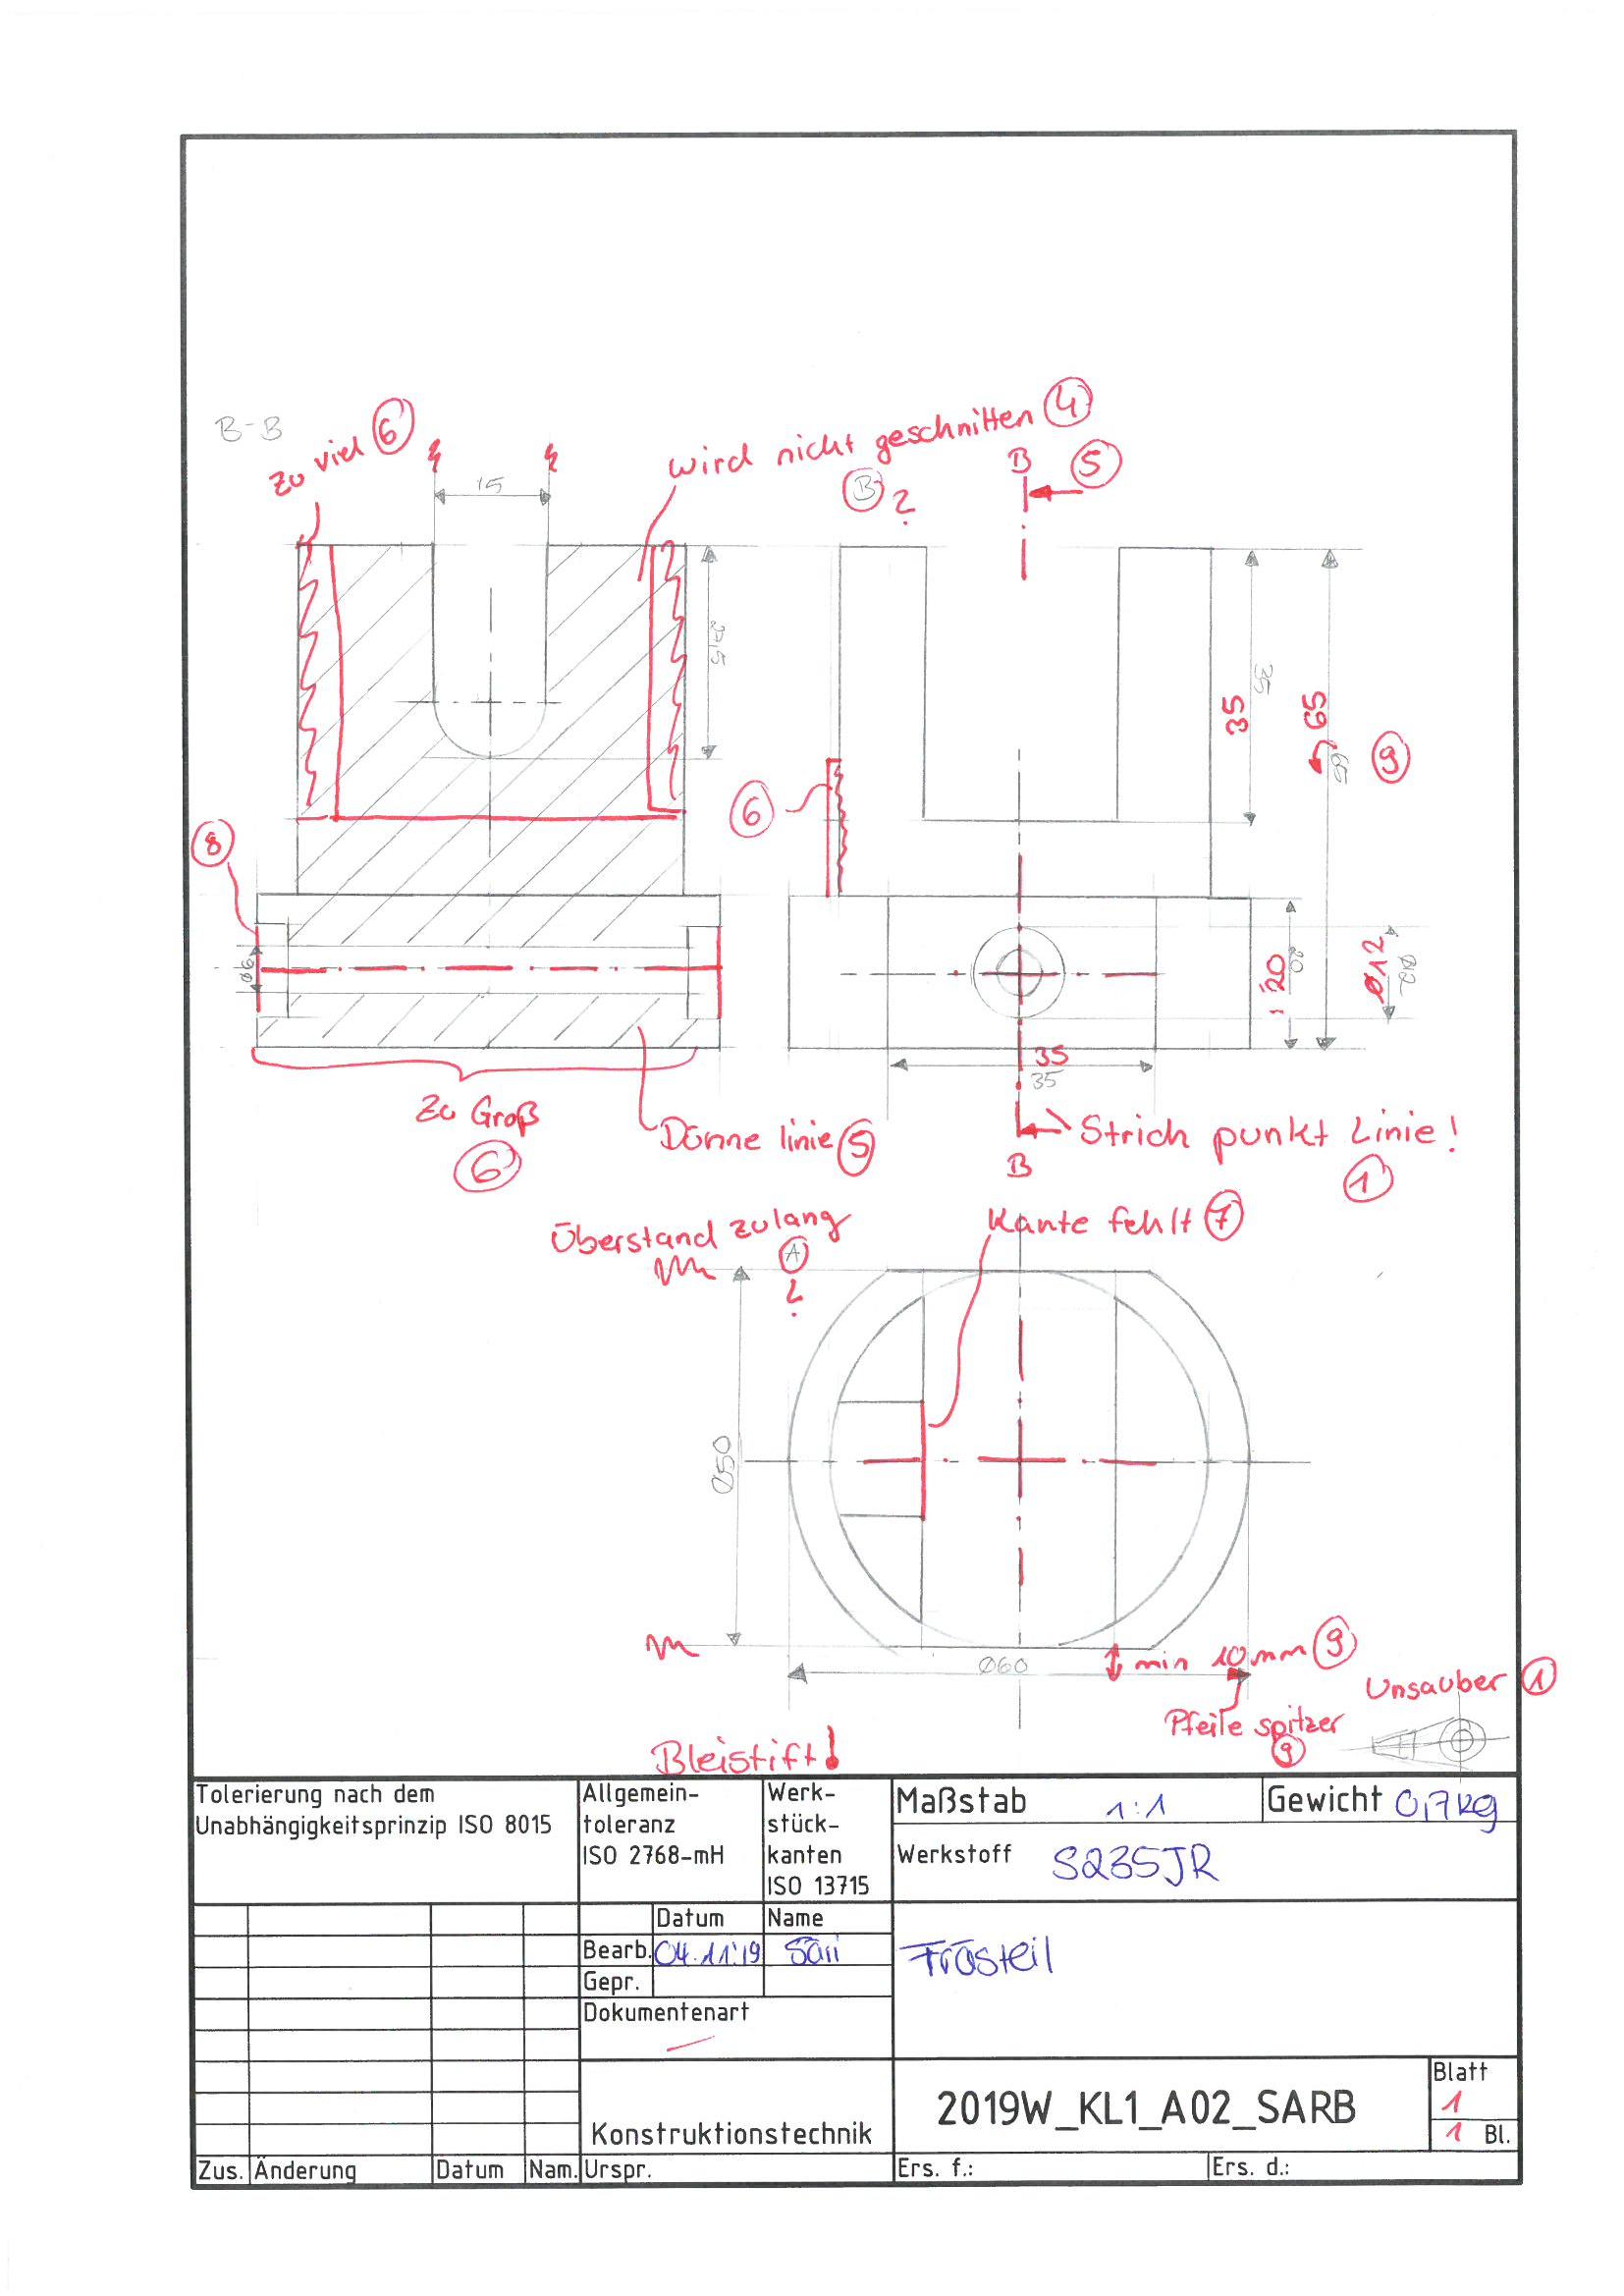 B-B
zu viel 6
15
wird nicht geschnitten 4
B ?
B 5
27,5
35
35
65
65
9
6
8
Ø6
20
20
Ø12
Ø12
35
35
zu Groß
6
Dünne linie 5
Strich punkt Linie!
B
1
Überstand zulang
A
?
Kante fehlt 7
Ø50
Ø60
min 10mm 9
Unsauber 1
Pfeile spitzer
9
Bleistift!
Tolerierung nach dem
Unabhängigkeitsprinzip ISO 8015
Allgemein-
toleranz
ISO 2768-mH
Werk-
stück-
kanten
ISO 13715
Maßstab 1:1
Gewicht 0,7kg
Werkstoff S235JR
Datum Name
Bearb. 04.11.19 Sari
Gepr.
Dokumentenart
Frästeil
Konstruktionstechnik
2019W_KL1_A02_SARB
Blatt
1
1 Bl.
Zus. Änderung Datum Nam. Urspr. Ers. f.: Ers. d.: